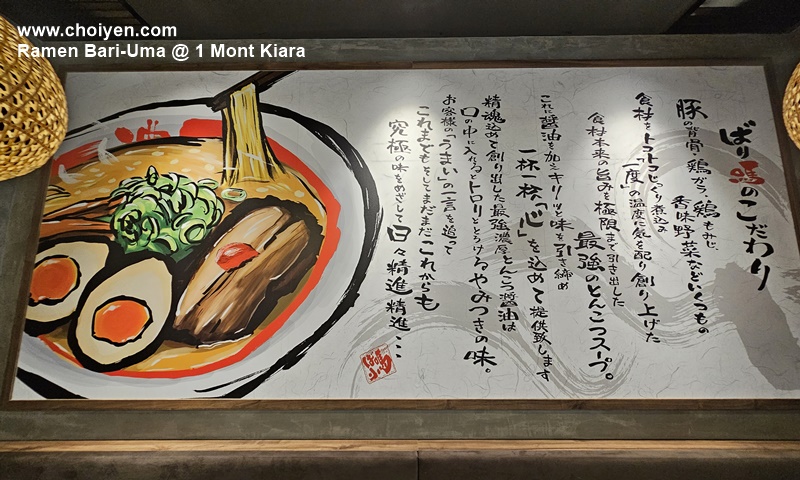 www.choiyen.com
Ramen Bari-Uma @ 1 Mont Kiara
ばり馬のこだわり
豚の背骨、鶏ガラ、鶏もみじ、
香味野菜などいくつもの
食材をトコトコじっくり煮込み
「一度」の温度に気を配り創り上げた
食材本来の旨みを極限まで引き出した
最強のとんこつスープ。
これに醤油を加えキリリッと味を引き締め
一杯一杯「心」を込めて提供致します
精魂込めて創り出した最強濃厚とんこつ醤油は
口の中に入れるとトロリッととろけるやみつきの味。
お客様の「うまい」の一言を追って
これまでもそしてまだまだこれからも
究極の味をめざして日々精進精進…